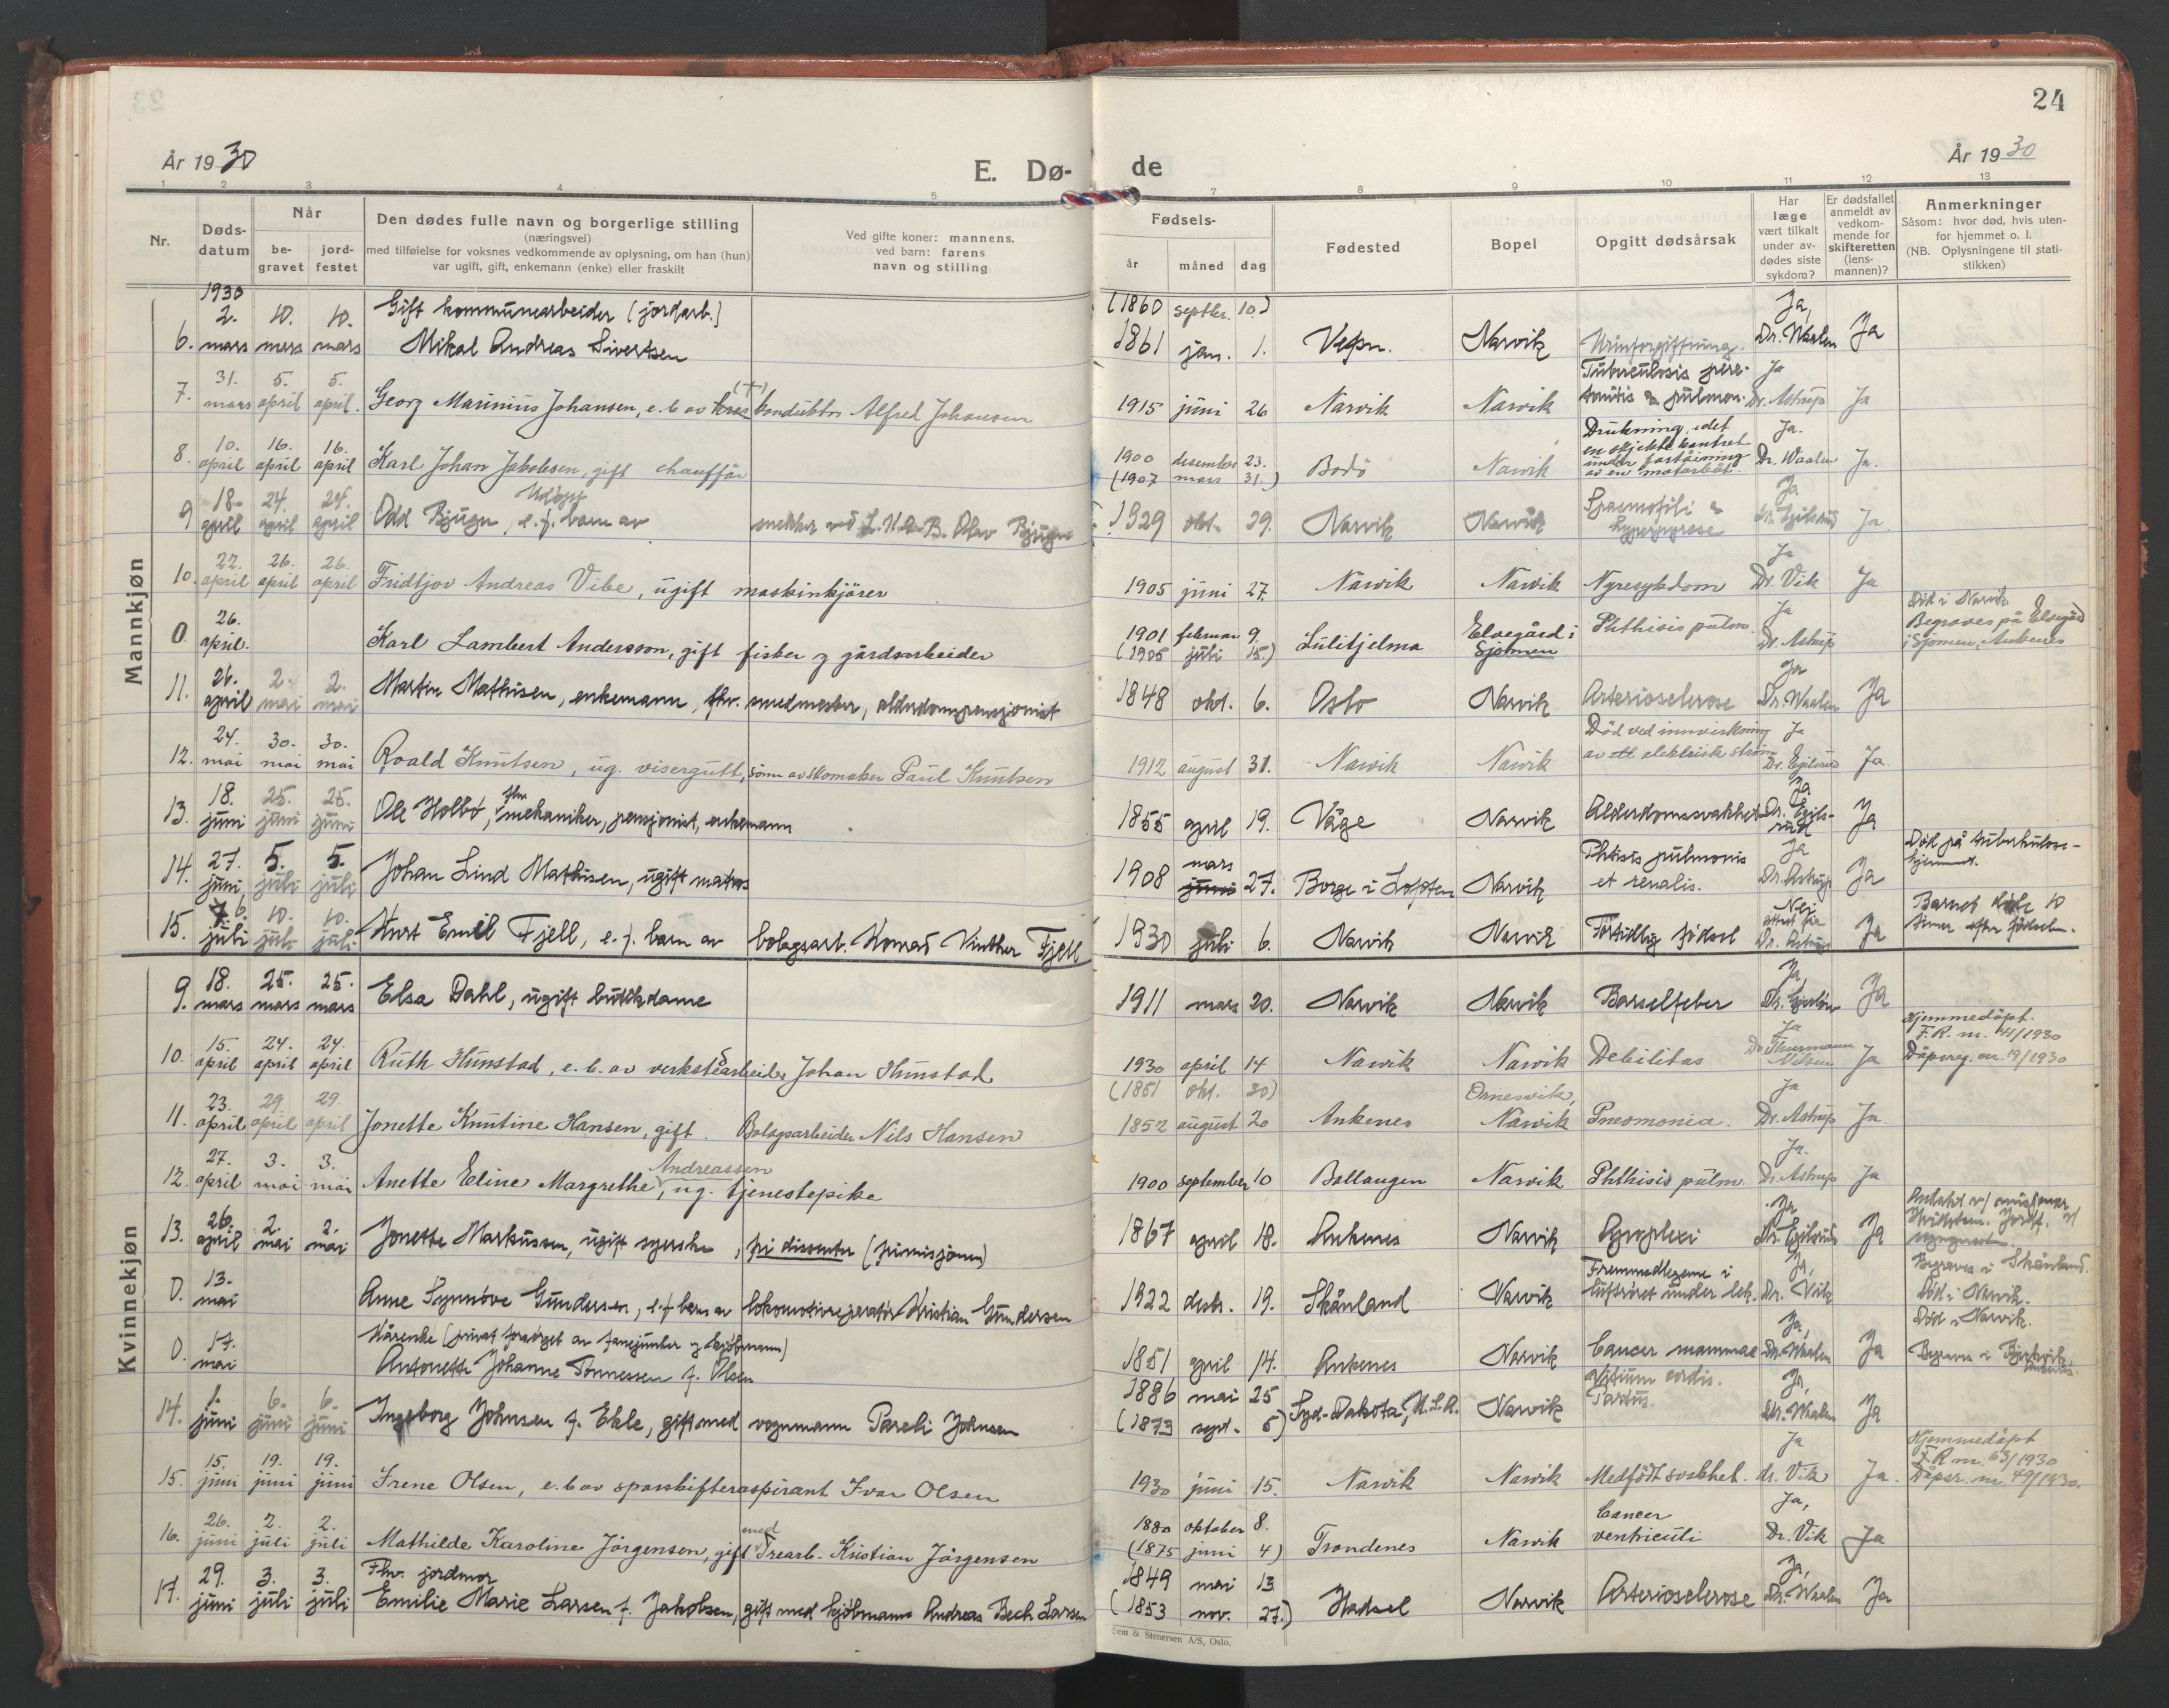 24
År 1930
E. Dø-
de
År 1930
1 2 3 4 5 7 8 9 10 11 12 13
Nr.
Døds-
datum
Når
be-
gravet
jord-
festet
Den dødes fulle navn og borgerlige stilling
(næringsvei)
med tilføielse for voksnes vedkommende av oplysning, om han (hun)
var ugift, gift, enkemann (enke) eller fraskilt
Ved gifte koner: mannens,
ved barn: farens
navn og stilling
Fødsels-
år måned dag
Fødested
Bopel
Opgitt dødsårsak
Har
læge
vært tilkalt
under av-
dødes siste
sykdom?
Er dødsfallet
anmeldt av
vedkom-
mende for
skifteretten
(lens-
mannen)?
Anmerkninger
Såsom: hvor død, hvis uten-
for hjemmet o. l.
(NB. Oplysningene til stati-
stikken)
Mannkjøn
1930
2. 10. 10. Gift kommunearbeider (jordarb.) (1860 septbr. 10.) Ja,
6. mars mars mars Mikal Andreas Sivertsen 1861 jan. 1. Vefsn. Narvik Urinforgiftning. Dr. Waalen Ja
31. 5. 5. (+) Tuberculosis pere- Ja
7. mars april april. Georg Marinius Johansen, e. b. av konduktør Alfred Johansen 1915 juni 26 Narvik Narvik tonitis & pulmon. Dr. Astrup Ja
10. 16. 16. Drukning, idet Ja.
8. april april april Karl Johan Jakobsen, gift chauffør 1900 desember 23. Bodö Narvik en skjekte kantret Dr. Waalen Ja.
(1907 mars 31.) under fortöining av en motorbåt.
18. 24. 24. Ja
9 april april april Odd Bjugn, e. f. barn av snekker ved L.K.A.B. Olav Bjugn 1929 okt. 29. Narvik Narvik Spasmofili & hyperpyrese Dr. Egilsrud Ja
22. 26. 26. Ja
10. april april april Fridtjov Andreas Vibe, ugift maskinkjører 1905 juni 27. Narvik Narvik Nyresykdom Dr. Vik Ja
26. Ja Död i Narvik.
0. april. Karl Lambert Andersson, gift fisker og gårdsarbeider 1901 februar 9. (1905 juli 15.) Sulitjelma Elvegård i Sjomen Phthisis pulm. Dr. Astrup Begraves på Elvegård i Sjomen, Ankenes
26. 2. 2. Ja
11. april mai mai Martin Mathisen, enkemann, fhv. smedmester, alderdomspensjonist 1848 okt. 6. Oslo Narvik Arteriosclerose Dr. Waalen Ja
24. 30. 30. Död ved innvirkning Ja
12. mai mai mai Roald Knutsen, ug. visergutt, sönn av skomaker Paul Knutsen 1912 august 31. Narvik Narvik av ett elektrisk ström Dr. Egilsrud Ja.
18. 25. 25. fhv. Ja
13. juni juni juni Ole Holbö, mekaniker, pensjonist, enkemann 1855 april 19. Våge Narvik Alderdomssvakhet Dr. Egils-rud Ja
27. 5. 5. mars Phtisis pulmonis Ja Död på tuberkulose-
14. juni juli juli Johan Lind Mathisen, ugift matros 1908 juni 27. Borge i Lofoten Narvik et renalis. Dr. Astrup Ja hjemmet.
7 6. 10. 10. Nei Barnet döde 10
15. juli juli juli Kurt Emil Fjell, e. f. barn av bolagsarb. Konrad Vinther Fjell 1930 juli 6. Narvik Narvik Förtidlig födsel attest fra Dr. Astrup Ja timer efter födselen.
Kvinnekjøn
18. 25. 25. Ja,
9. mars mars mars Elsa Dahl, ugift butikdame 1911 mars 20. Narvik Narvik Barselfeber Ja
15. 24. 24. Ja Hjemmedöpt.
10. april april april Ruth Hunstad, e. b. av verkstedarbeider Johan Hunstad 1930 april 14 Narvik Narvik Debilitas Dr. Thurmann Nilsen Ja F.R. nr. 41/1930 Dåpsreg. nr. 19/1930
23. 29. 29. (1851 okt. 30) Ornesvik, Ja
11. april april april Jonette Knutine Hansen, gift. Bolagsarbeider Nils Hansen 1852 august 20 Ankenes Narvik Pneomonia. Dr. Astrup Ja.
27. 3. 3. Andreassen Ja.
12. april mai mai Anette Eline Margrethe, ug. tjenestepike 1900 september 10 Ballangen Narvik Phthisis pulm. Dr. Astrup Ja
26. 2. 2. Ja
13. april mai mai Jonette Markussen, ugift syerske, fri dissenter (frimisjonen) 1867 april 18. Ankenes Narvik Apoplexi Dr. Egilsrud Ja
13. Fremmedlegeme i Ja, Begraves i Skånland.
0. mai Anne Synnöve Gundersen, e. f. barn av lokomotivreparatör Kristian Gundersen 1922 desbr. 19. Skånland Narvik luftröret under lek. Dr. Vik Död i Narvik.
17. Kårenke (privat forsörget av fanejunker og kjöbmann) Ja, Död i Narvik.
0. mai Antonette Johanne Tönnessen f. Olsen 1851 april 14. Ankenes Narvik Cancer mammae Dr. Waalen Ja Begraves i Bjerkvik,
1. 6. 6. 1886 mai 25 Vitium cordis. Ja,
14. juni juni juni Ingeborg Johnsen f. Ekle, gift med vognmann Pareli Johnsen (1873 sept. 5) Syd-Dakota, U.S.A. Narvik Partus. Dr. Waalen Ja
15. 19. 19. Ja Hjemmedöpt
15. juni juni juni Irene Olsen, e. b. av sporskifteraspirant Ivar Olsen 1930 juni 15. Narvik Narvik Medfödt svakhet. dr. Vik Ja. F.R nr. 63/1930 Dåpsr. nr. 49/1930.
26. 2. 2. med 1880 oktober 8. Cancer Ja,
16. juni juli juli Mathilde Karoline Jörgensen, gift Trearb. Kristian Jörgensen (1875 juni 4) Trondenes Narvik ventriculi Dr. Vik Ja
29. 3. 3. Fhv. jordmor 1849 mai 13 Ja,
17. juni juli juli Emilie Marie Larsen f. Jakobsen, gift med kjöbmann Andreas Bech Larsen (1853 nov. 27.) Hadsel Narvik Arteriosclerose Dr. Waalen Ja
Sem & Stenersen A/S, Oslo.